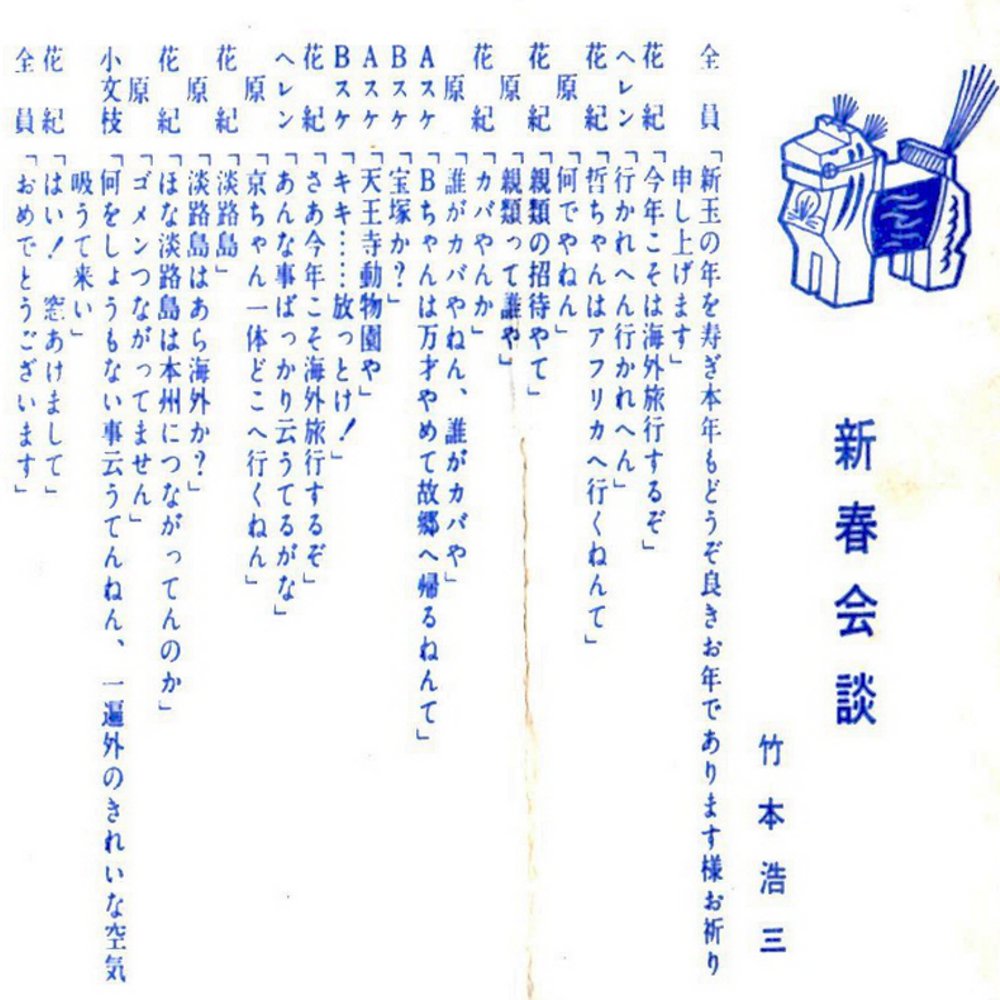 新春会談
竹本浩三
全員「新玉の年を寿ぎ本年もどうぞ良きお年であります様お祈り
申し上げます」
花紀「今年こそは海外旅行するぞ」
ヘレン「行かれへん行かれへん」
花紀「哲ちゃんはアフリカへ行くねんて」
原「何でやねん」
花紀「親類の招待やて」
原「親類って誰や」
花紀「カバやんか」
原「誰がカバやねん、誰がカバや」
Aスケ「Bちゃんは万才やめて故郷へ帰るねんて」
Bスケ「宝塚か?」
Aスケ「天王寺動物園や」
Bスケ「キキ……放っとけ!」
花紀「さあ今年こそ海外旅行するぞ」
ヘレン「あんな事ばっかり云うてるがな」
原「京ちゃん一体どこへ行くねん」
花紀「淡路島」
原「淡路島はあら海外か?」
花紀「ほな淡路島は本州につながってんのか」
原「ゴメンつながってません」
小文枝「何をしょうもない事云うてんねん、一遍外のきれいな空気
吸うて来い」
花紀「はい! 窓あけまして」
全員「おめでとうございます」